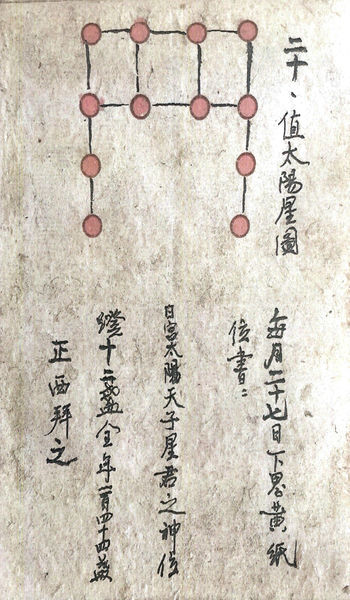 二十、值太陽星圖
每月二十七日下界黄紙
位書：
日宫太陽天子星君之神位
燈十二盏全年一百四十四盏
正西拜之